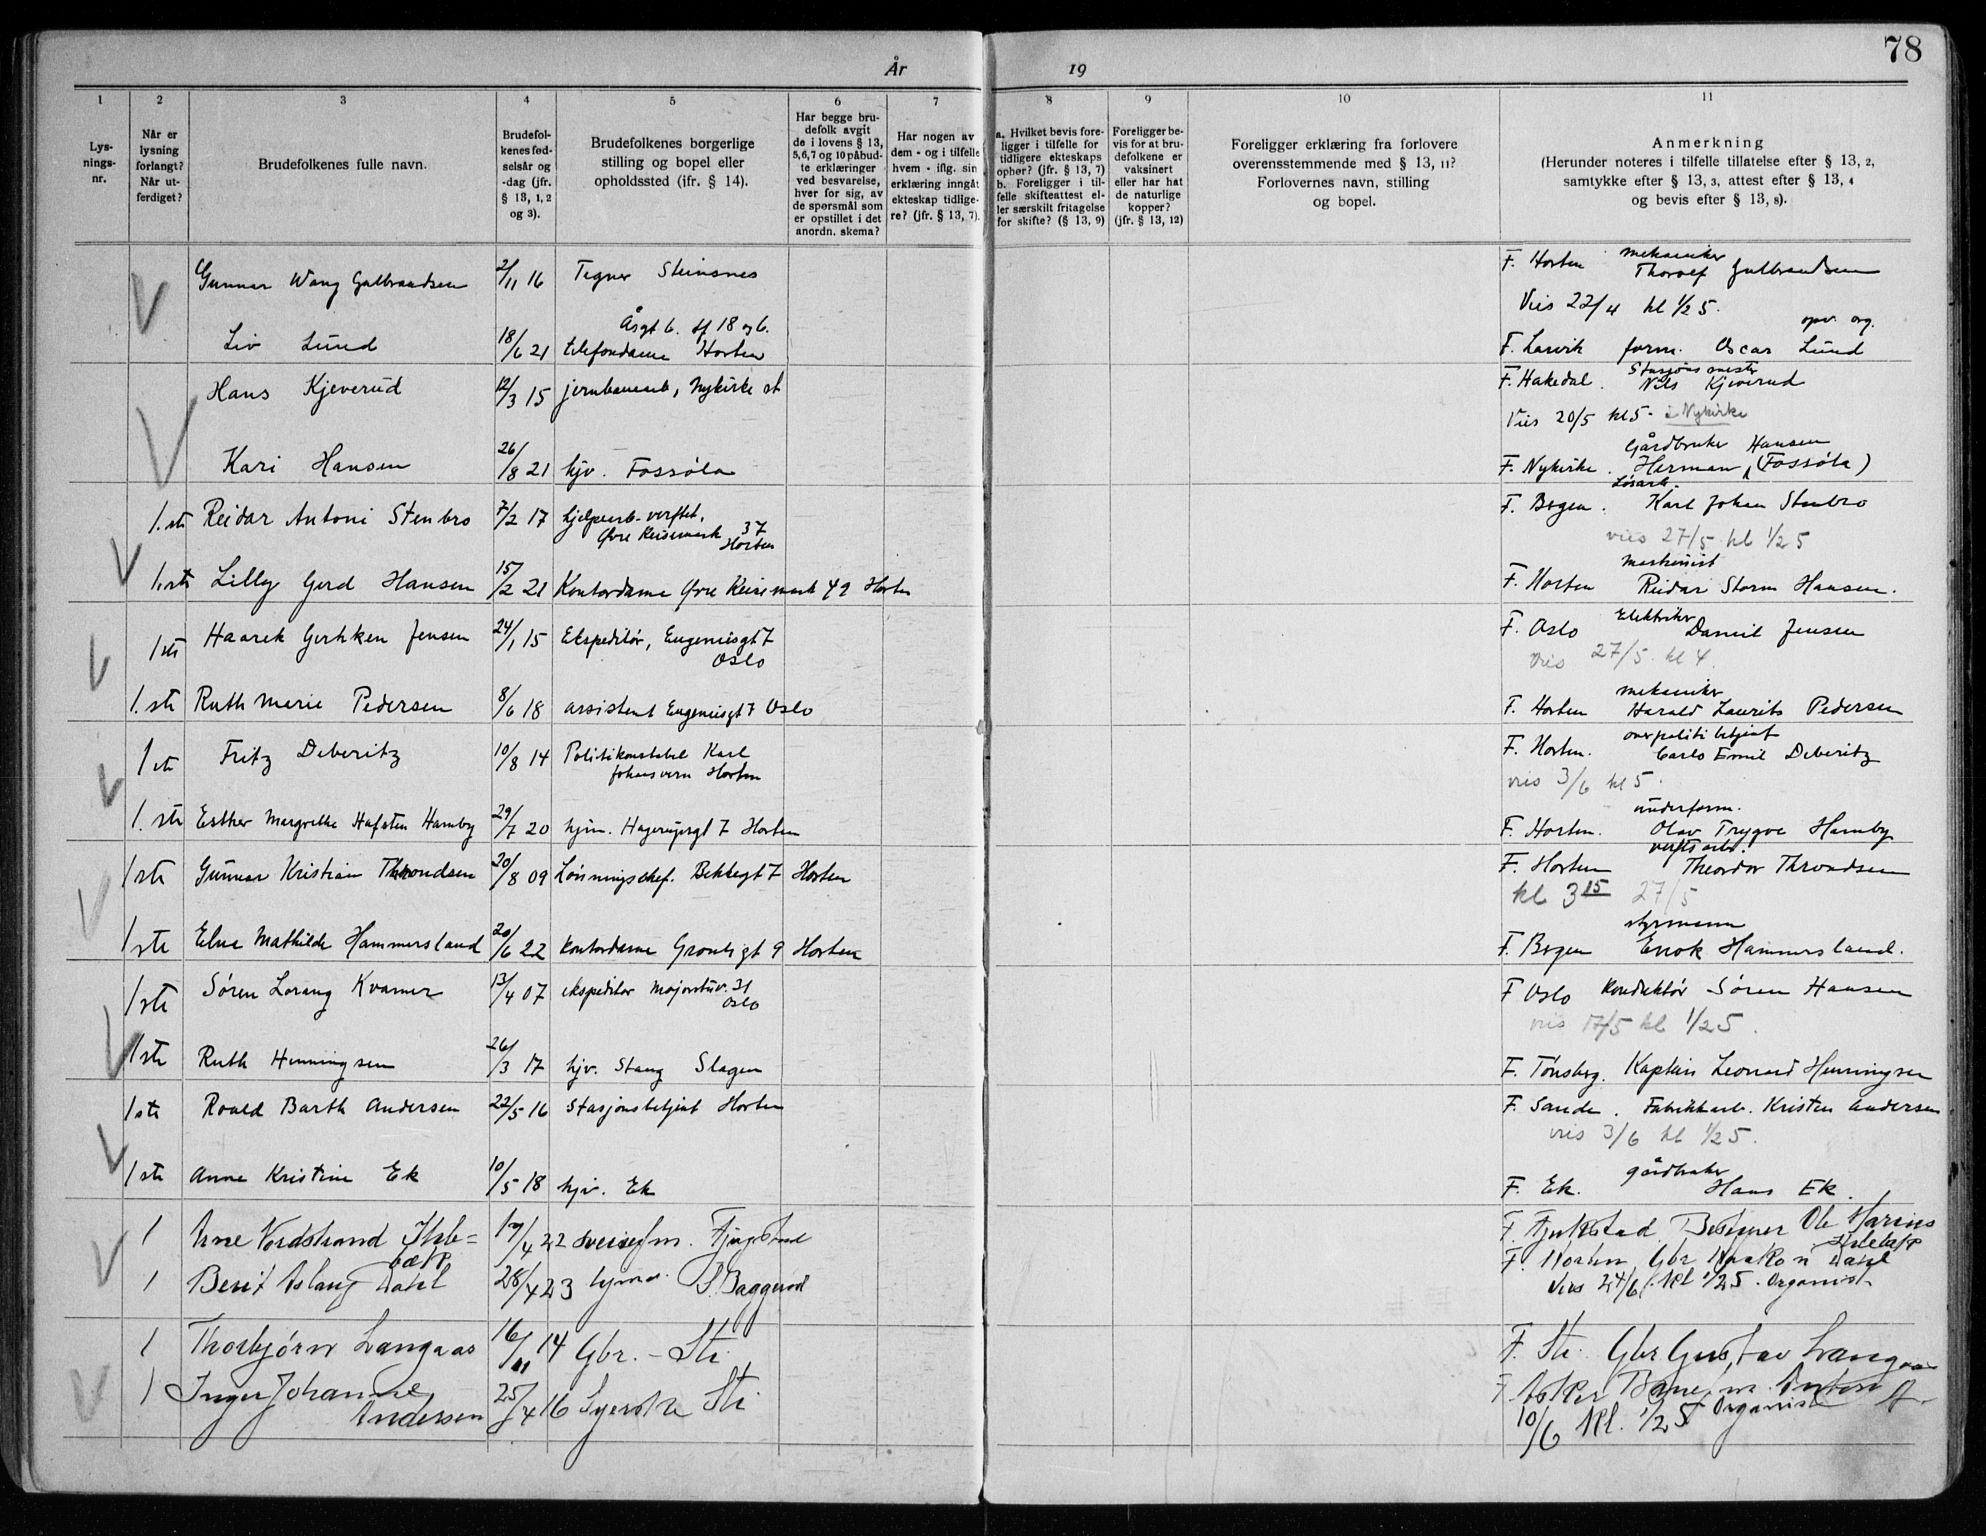 78
År 19
1 2 3 4 5 6 7 8 9 10 11
Lys-
nings-
nr.
Når er
lysning
forlangt?
Når ut-
ferdiget?
Brudefolkenes fulle navn.
Brudefol-
kenes fød-
selsår og
-dag (jfr.
§ 13, 1, 2
og 3).
Brudefolkenes borgerlige
stilling og bopel eller
opholdssted (ifr. § 14).
Har begge bru-
defolk avgit
de i lovens § 13,
5, 6, 7 og 10 påbud-
te erklæringer
ved besvarelse,
hver for sig, av
de spørsmål som
er opstillet i det
anordn. skema?
Har nogen av
dem - og i tilfelle
hvem - iflg. sin
erklæring inngåt
ekteskap tidlige-
re? (jfr. § 13, 7).
a. Hvilket bevis fore-
ligger i tilfelle for
tidligere ekteskaps
ophør? (jfr. § 13, 7)
b. Foreligger i til-
felle skifteattest el-
ler særskilt fritagelse
for skifte? (§ 13, 9)
Foreligger be-
vis for at bru-
defolkene er
vaksinert
eller har hat
de naturlige
kopper?
(jfr. § 13, 12)
Foreligger erklæring fra forlovere
overensstemmende med § 13, 11?
Forlovernes navn, stilling
og bopel.
Anmerkning
(Herunder noteres i tilfelle tillatelse efter § 13, 2,
samtykke efter § 13, 3, attest efter § 13, 4
og bevis efter § 13, 8).
Gunnar Wang Gulbrandsen 2/11 16 Tegner Steinsnes F. Horten mekaniker Thoralf Gulbrandsen
Vies 22/4 kl 1/2 5.
Liv Lund 18/6 21 Åsgt 6. telefondame Horten F. Larvik form. Oscar Lund
Hans Kjeverud 12/3 15 jernbanearb, Nykirke st F. Hakedal. Stasjonsmester Nils Kjeverud
Vies 20/5 kl 5 - i Nykirke
Kari Hansen 26/8 21 hjv. Fossøla F. Nykirke. Gårdbruker Herman Hansen (Fossøla)
1. ste Reidar Antoni Stenbro 7/2 17 hjelpearb. verftet, Øvre Keisemark 37 Horten F. Bergen. Løsarb. Karl Johan Stenbro
vies 27/5 kl 1/2 5
1. ste Lilly Gerd Hansen 15/2 21 Kontordame Øvre Keisemark 42 Horten F. Horten maskinist Reidar Storm Hansen.
1 ste Haarek Gerhken Jensen 24/1 15 Ekspeditør, Eugeniesgt 7 Oslo F. Oslo Elektriker Daniel Jensen
vies 27/5 kl 4.
1. ste Ruth Marie Pedersen 8/6 18 assistent Eugeniesgt 7 Oslo F. Horten mekaniker Harald Laurits Pedersen
1 ste Fritz Deberitz 10/8 14 Politikonstabel Karl Johansvern Horten F. Horten. overpolitibetjent Carlo Emil Deberitz
vies 3/6 kl 5.
1. ste Esther Margrethe Hafsten Hamby 29/7 20 hjm. Hagerupsgt 7 Horten F. Horten. underform. Olav Trygve Hamby
1 ste Gunnar Kristian Throndsen 20/8 09 Lønningschef. Bekkegt 7 Horten F. Horten verftsarb. Theodor Throndsen
kl 3 15 27/5
1 ste Elna Mathilde Hammersland 20/6 22 kontordame Grønligt 9 Horten F. Bergen styrmann Enok Hammersland.
1 ste Søren Lorang Kvamer 13/4 07 ekspeditør Majorstuv. 31 Oslo F Oslo Konduktør Søren Hansen
vies 17/5 kl 1/2 5.
1 ste Ruth Henningsen 26/3 17 hjv. Stang Slagen F. Tønsberg. Kaptein Leonard Henningsen
1 ste Roald Barth Andersen 22/5 16 Stasjonsbetjent Horten F. Sande. Fabrikkarb. Kristen Andersen
vies 3/6 kl 1/2 5.
1 ste Anne Kristine Ek 10/5 18 hjv. Ek F. Ek. gårdbruker Hans Ek.
1 Arne Nordstrand Ihle=
bæk 17/4 22 Fjugstad F. Bestyrer Ole Marius Ihlebæk
1 Berit Aslaug Dahl 28/4 23 hjmv. S. Baggerød F. Horten, Gbr Haakon Dahl
Vies 24/6. Kl 1/2 5. Organist
1 Thorbjørn Langaas 16/11 14 Gbr. - Sti F. Sti. Gbr Gustav Langaas
1 Inger Johanne
Andersen 25/4 16 Syerske Sti F Asker Banefm. Anton A.
10/6 Kl. 1/2 5 Organist